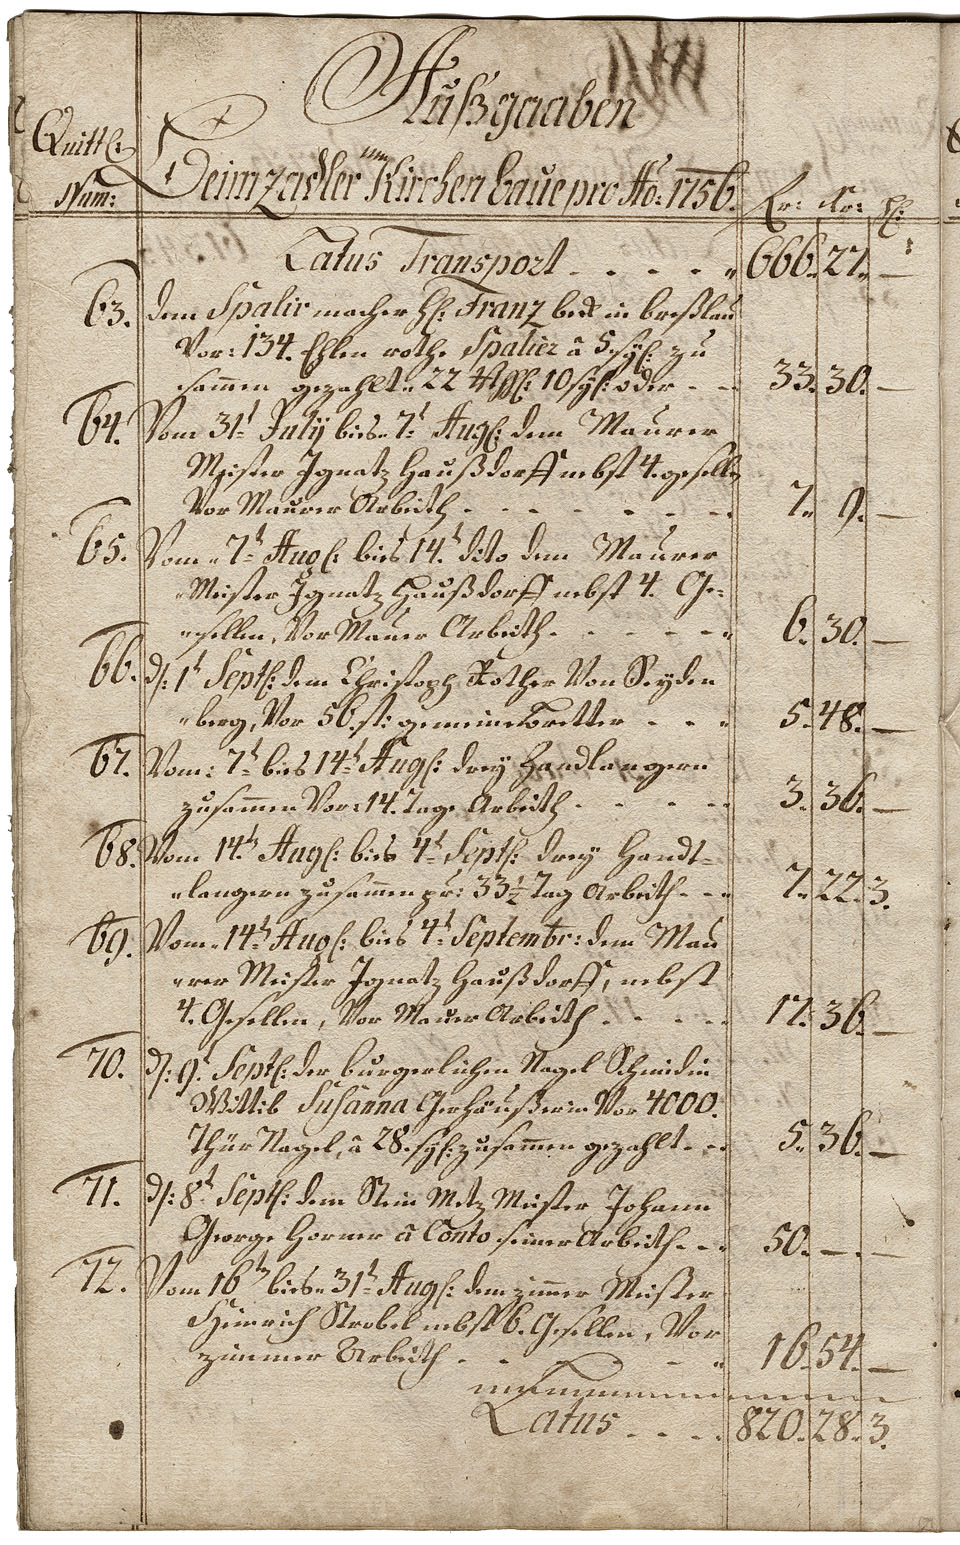 Außgaaben
Quittl:
Num:
Heinzadler Kirchen baue pro Aō: 1756.
Fr: Kr: hl:
Latus Transport . . . . . „ 666. 27. —
63. dem Spalir macher H: Franz beck in breßlau
Vor: 134. Ehlen rothe Spalier â 5. sgl: zu
sammen gezahlt „ 22 Rthl: 10 sgl: oder - - „ 33. 30. —
64. Vom 31t July bies 7t Augl: dem Maurer
Meister Ignatz Haußdorff nebst 4. geselln
Vor Maurer Arbeith . - - - - - - 7. 9. —
65. Vom „ 7t Augl: bies 14t dito dem Maurer
Meister Ignatz Haußdorff nebst 4. Ge-
„sellen, Vor Maurer Arbeith . - - - - „ 6. 30. —
66. d: 1t Septl: dem Christoph Rother Von Seyden
„berg, Vor 56. st: gemeine bretter - - „ 5. 48. —
67. Vom: 7t bies 14t Augl: drey Handlangern
zusammen Vor: 14. Tage Arbeith . - - - „ 3. 36. —
68. Vom 14t Augl: bies 4t Septl: drey Handt-
„langern zusammen pr: 33 1/2 Tag Arbeith - - „ 7. 22. 3.
69. Vom „ 14t Augl: bies 4t Septembr: dem Mau
„rer Meister Ignatz Haußdorff, nebst
4. Gesellen, Vor Maurer Arbeith . - - - - 17. 36. —
70. d: 9t Septl: der burgerlichen Nagel Schmidin
Wittib Susanna Gerhäußerin Vor 4000.
Thür Nagel, â 28. sgl: zusammen gezahlt - - 5. 36. —
71. d: 8t Septl: dem Stein Metz Meister Johann
George Horner â Conto seiner Arbeith - - - 50. — . —
72. Vom 16t bies „ 31t Augl: dem zimmer Meister
Heinrich Strobel nebst 6. Gesellen, Vor
zimmer Arbeith . - - - - „ 16. 54. —
Latus . . . . 820. 28. 3.